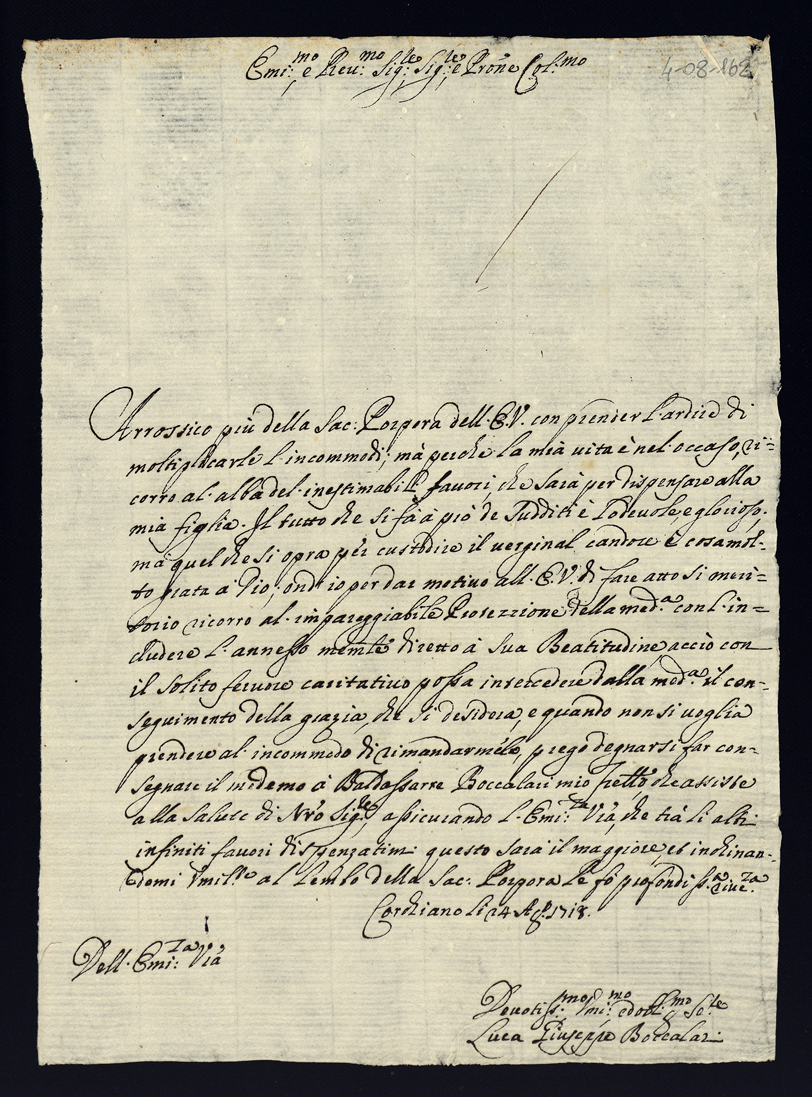 Emi:mo e Reu:mo Sig:re Sig:re e Prõne Col:mo
4-08-162
Arrossico più della Sac: Porpora dell' E.V. con prender l'ardire di
moltiplicarle l'incommodi; mà perche la mia vita è nel occaso, ri=
corro al' alba del' inestimabili favori, che sarà per dispensare alla
mia figlia. Il tutto che si fà à prò de Sudditi è lodevole, e glorioso,
mà quel che si opra per custodire il verginal candore è cosa mol=
to grata à Dio; ond'io per dar motivo all' E.V. di fare atto si meri=
torio ricorro al' impareggiabile Protezzione della med:a con l'in=
cludere l'annesso memle diretto à Sua Beatitudine acciò con
il solito fervore caritativo possa intercedere dalla med:a il con=
seguimento della grazia, che si desidera, e quando non si voglia
prendere al' incommodo di rimandarmelo, prego degnarsi far con=
segnare il medemo à Baldassarre Boccalari mio frello che assiste
alla salute di Nro Sig:re, assicurando l' Emi:za Vra, che trà li altri
infiniti favori dispenzatimi questo sarà il maggiore, et inchinan=
domi Vmil:te al lembo della Sac: Porpora le fò profondiss:a rive:za
Corchiano li 24 Ag:o 1718.
Dell' Emi:za Vra
Devotiss:mo Vmi:mo ed obl:mo Se:re
Luca Giuseppe Boccalari